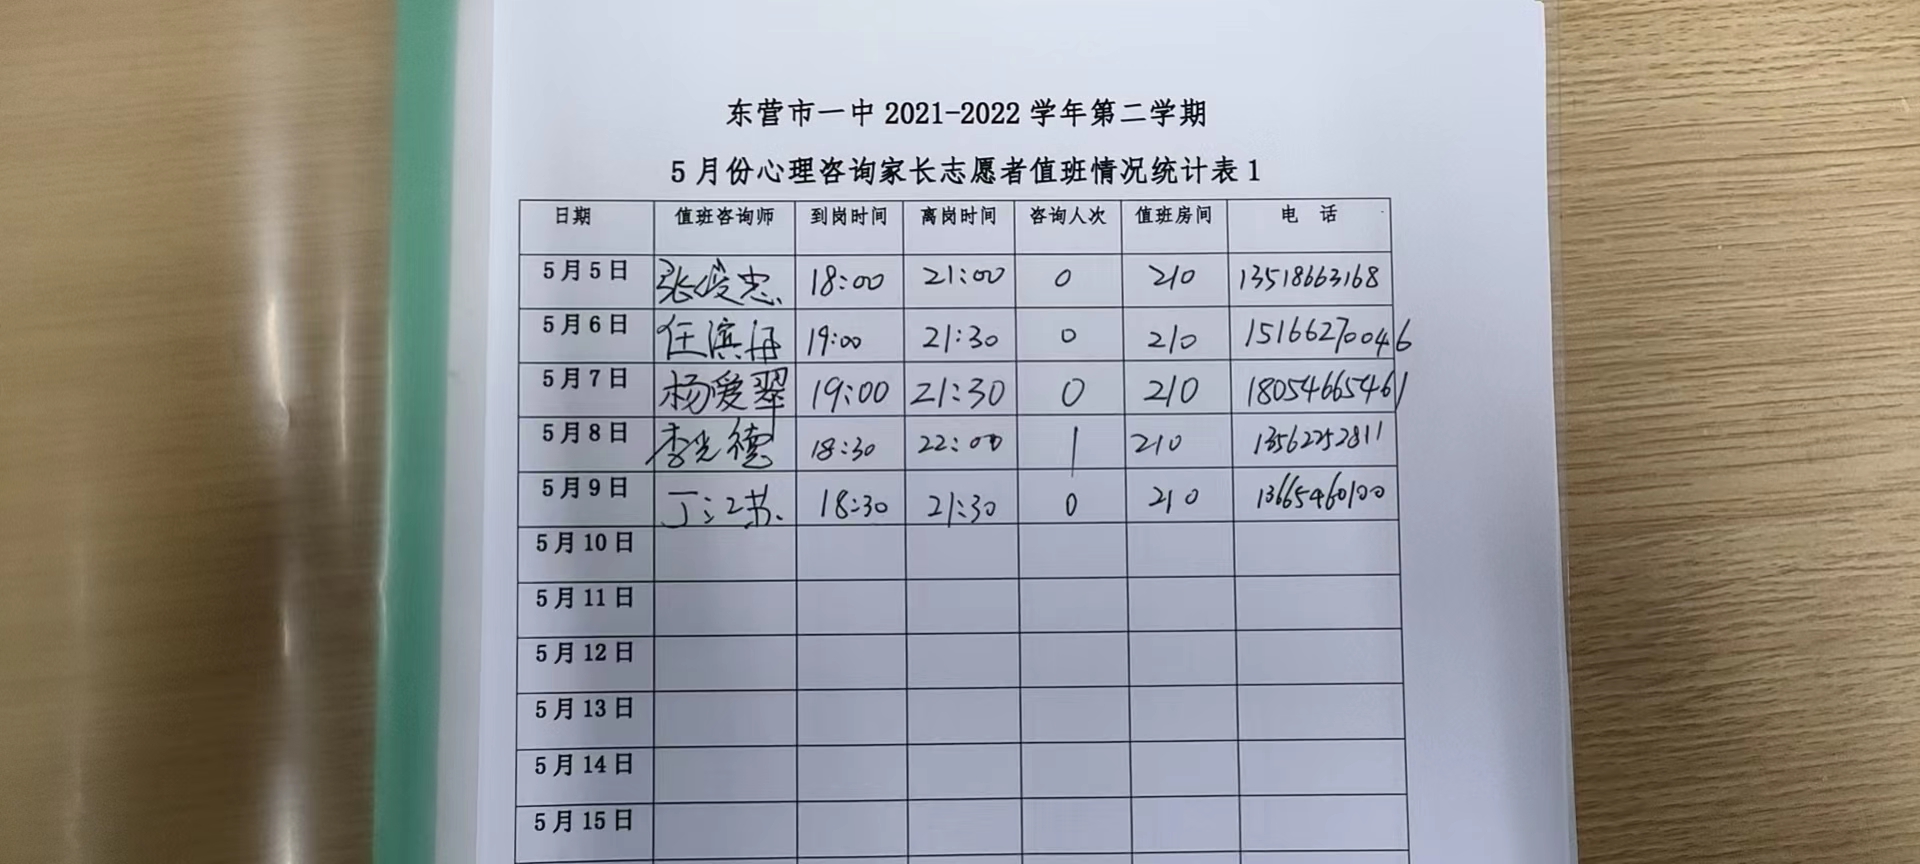 东营市一中 2021-2022 学年第二学期
5 月份心理咨询家长志愿者值班情况统计表 1
日期 值班咨询师 到岗时间 离岗时间 咨询人次 值班房间 电 话
5 月 5 日 张俊忠 18:00 21:00 0 210 13518663168
5 月 6 日 任滨丹 19:00 21:30 0 210 15166270046
5 月 7 日 杨爱翠 19:00 21:30 0 210 18054665461
5 月 8 日 李光德 18:30 22:00 1 210 13562252811
5 月 9 日 丁江苏 18:30 21:30 0 210 13665460100
5 月 10 日
5 月 11 日
5 月 12 日
5 月 13 日
5 月 14 日
5 月 15 日